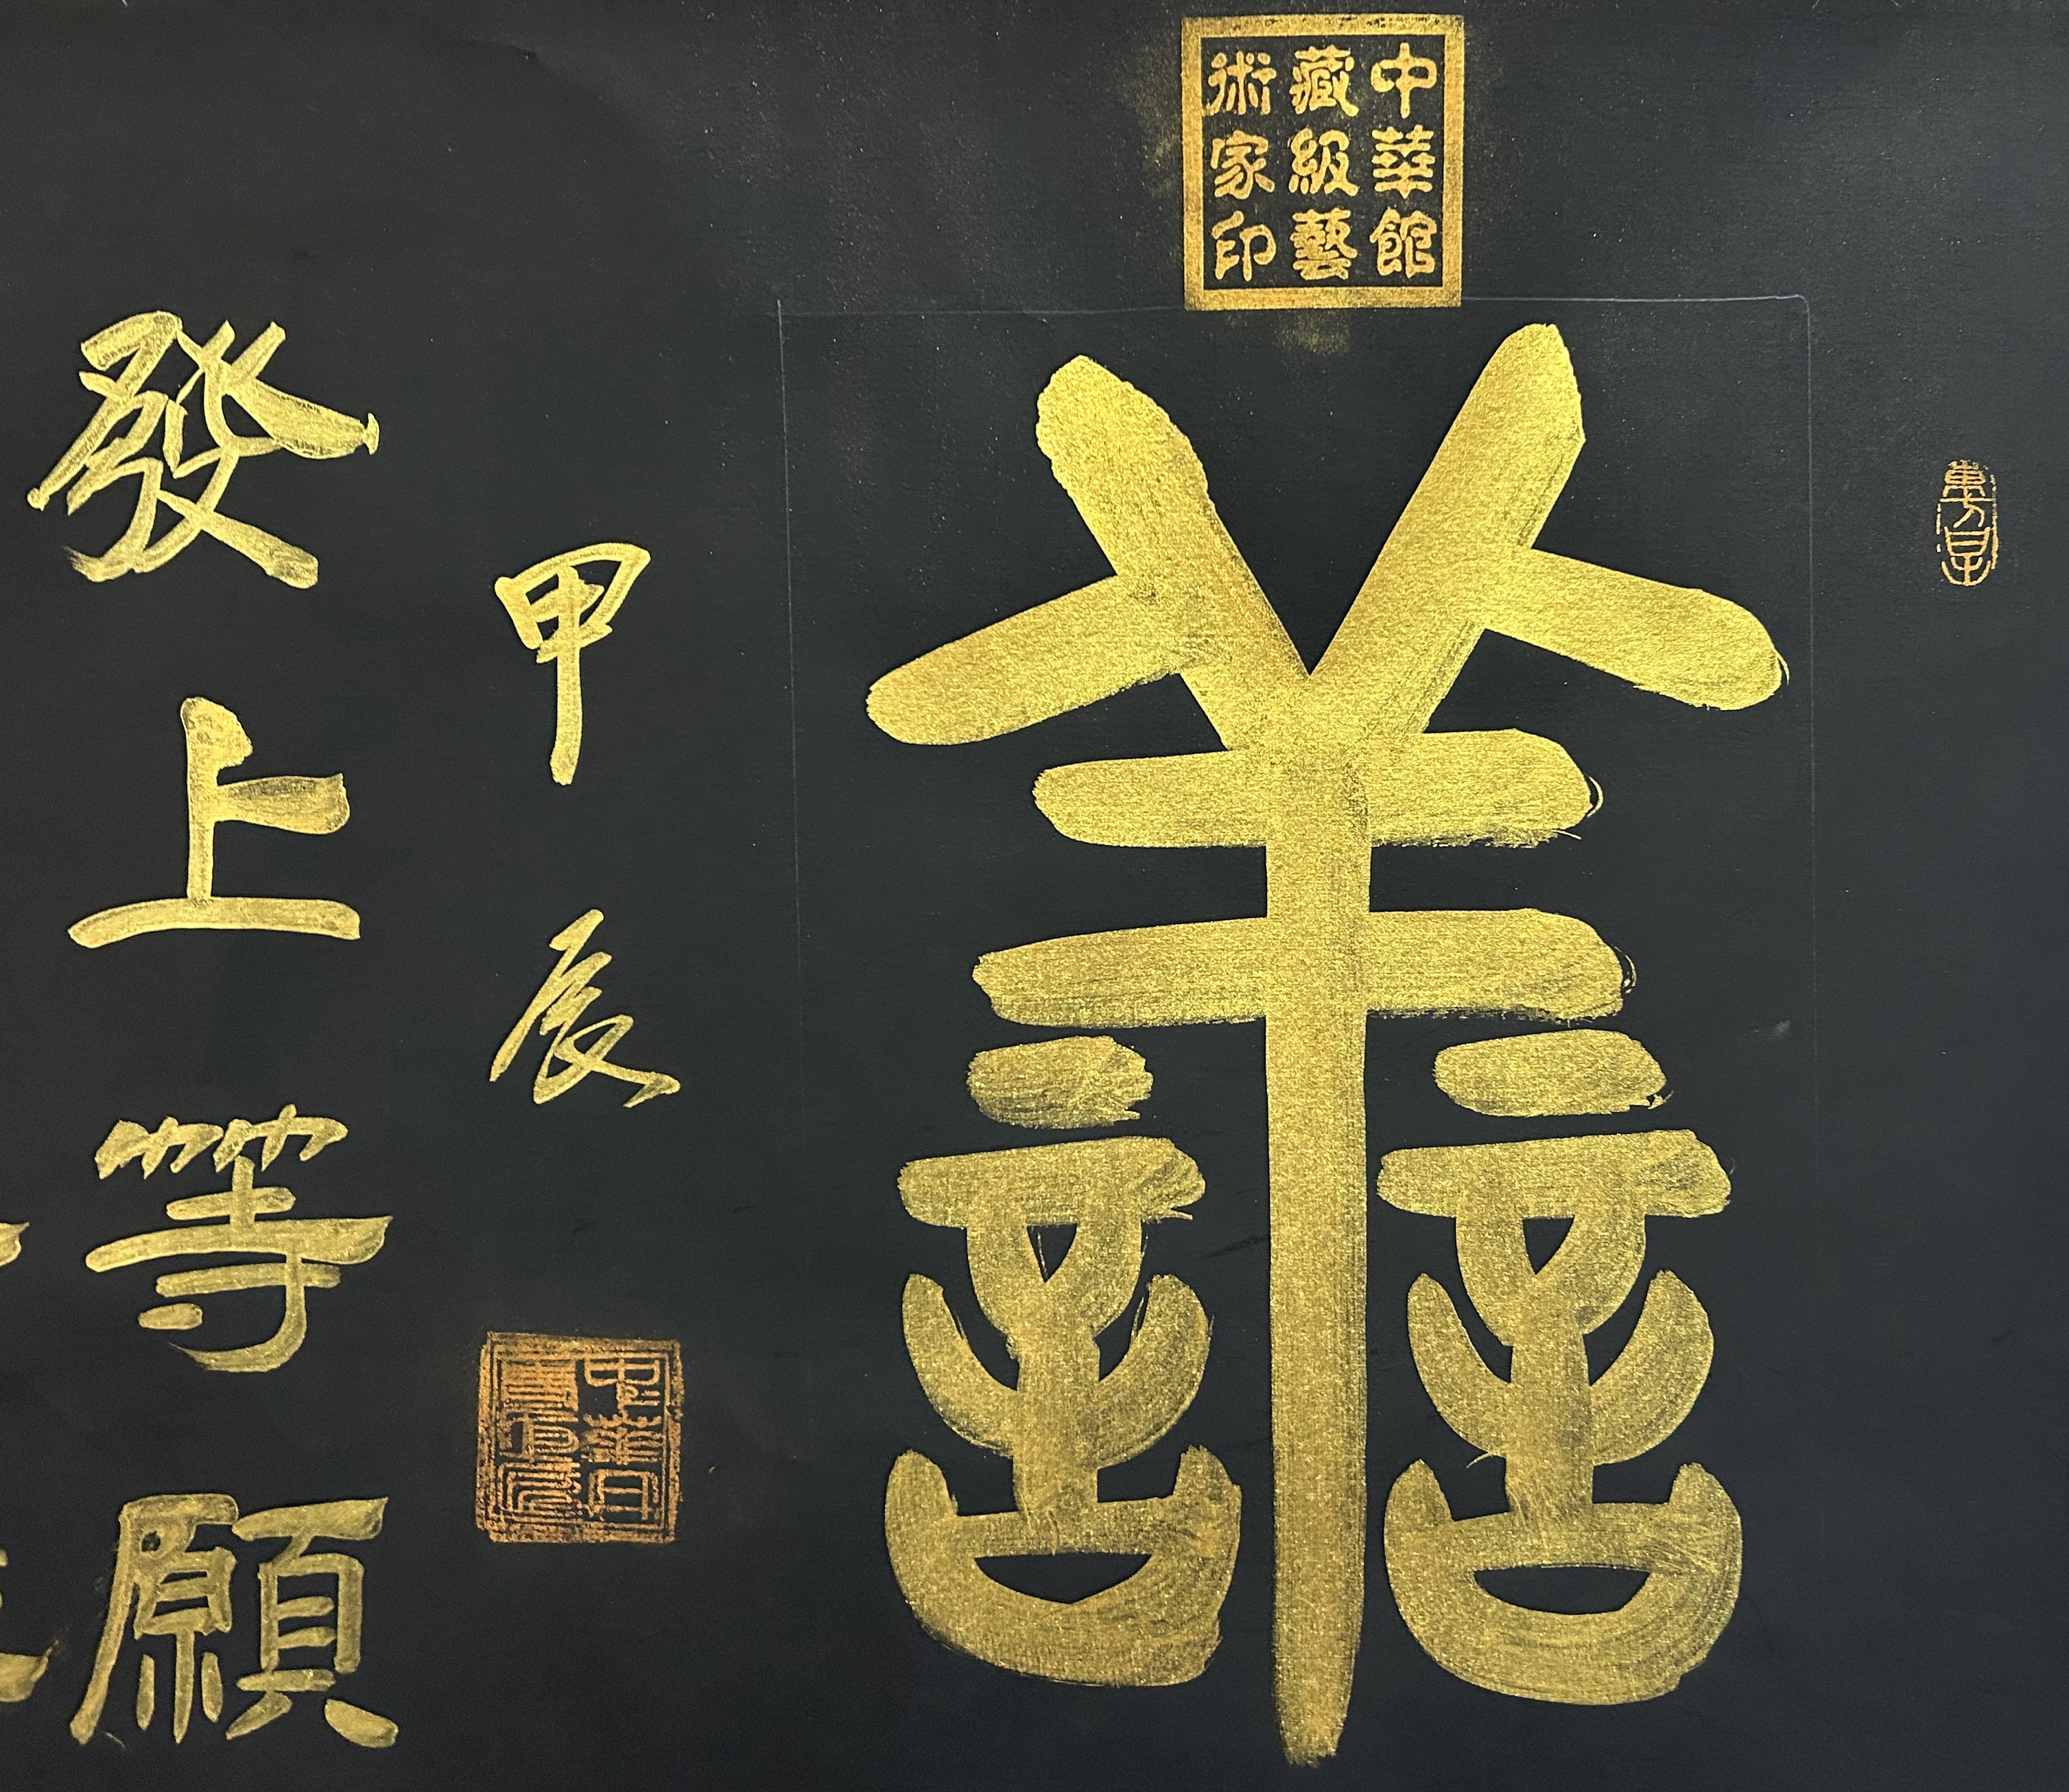 中華館
藏級藝
術家印
譱
甲辰
發上等願